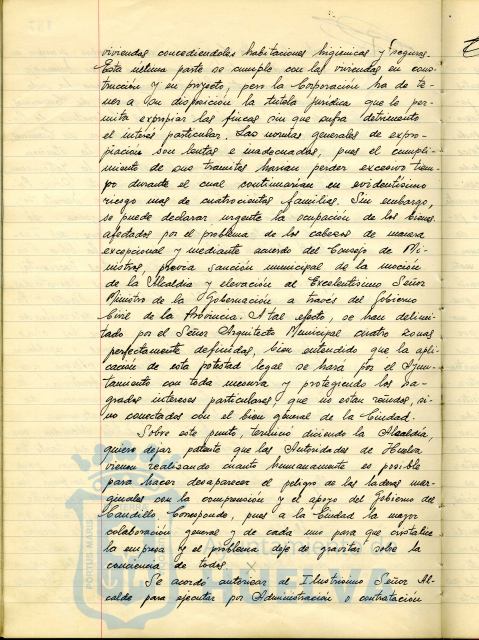 viviendas concediendoles habitaciones higienicas y seguras.
Esta última parte se cumple con las viviendas en cons-
trucción y en proyecto, pero la Corporación ha de te-
ner a su disposición la tutela juridica que le per-
mita expropiar las fincas sin que sufra detrimento
el interés particular. Las normas generales de expro-
piación son lentas e inadecuadas, pues el cumpli-
miento de sus tramites harian perder excesivo tiem-
po durante el cual continuarian en evidentísimo
riesgo mas de cuatrocientas familias. Sin embargo,
se puede declarar urgente la ocupación de los bienes
afectados por el problema de los cabezos de manera
excepcional y mediante acuerdo del Consejo de Mi-
nistros, previa sanción municipal de la moción
de la Alcaldia y elevación al Excelentísimo Señor
Ministro de la Gobernación a través del Gobierno
Civil de la Provincia. A tal efecto, se han delimi-
tado por el Señor Arquitecto Municipal cuatro zonas
perfectamente definidas, bien entendido que la apli-
cación de esta potestad legal se hara por el Ayun-
tamiento con toda mesura y protegiendo los sa-
grados intereses particulares que no estan reñidos, si-
no conectados con el bien general de la Ciudad.
Sobre este punto, terminó diciendo la Alcaldía,
quiero dejar patente que las Autoridades de Huelva
vienen realizando cuanto humanamente es posible
para hacer desaparecer el peligro de las laderas mar-
ginales con la comprensión y el apoyo del Gobierno del
Caudillo. Corresponde, pues a la Ciudad la mayor
colaboración general y de cada uno para que cristalice
la empresa y el problema deje de gravitar sobre la
conciencia de todos.
Se acordó autorizar al Ilustrisimo Señor Al-
calde para ejecutar por Administración o contratación
PORTUS MARIS
HUELVA